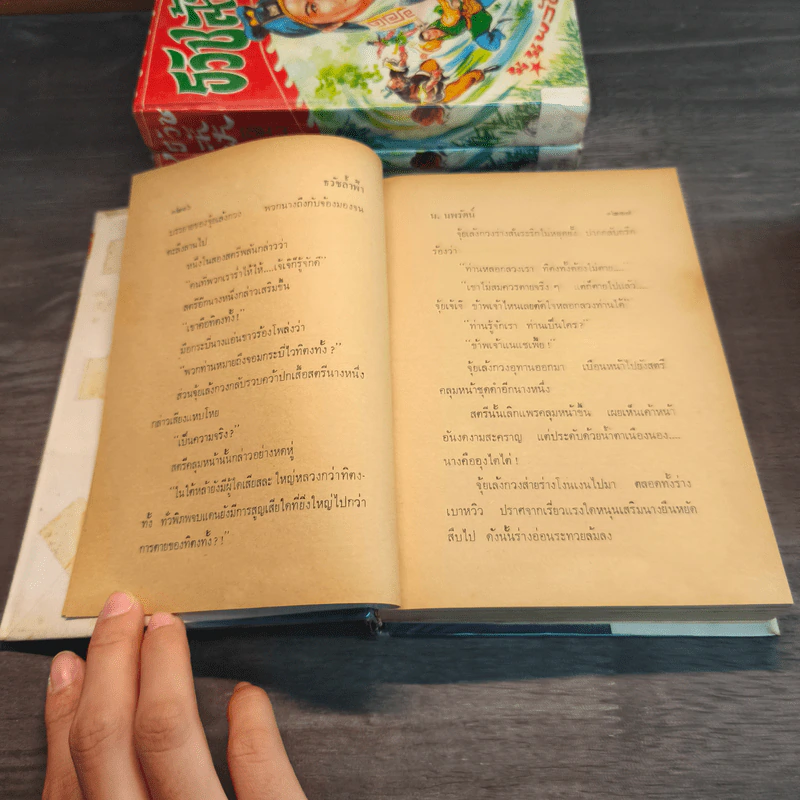 ธวัชล้ำฟ้า
บรรยายของจุ้ยเล้งกวง พวกนางถึงกับจ้องมองจน
ตะลึงลานไป
หนึ่งในสองสตรีพลันกล่าวว่า
"คนที่พวกเรารำให้ให้....เจ้เจ้ก็รู้จักดี"
สตรีอีกนางหนึ่งกล่าวเสริมขึ้น
"เขาคือทิตงทั้ง!"
มือกระบี่นางแอ่นขาวร้องโพล่งว่า
"พวกท่านหมายถึงจอมกระบี่ไวทิตงทั้ง?"
ส่วนจุ้ยเล้งกวงกลับรวบคว้าปกเสื้อสตรีนางหนึ่ง
กล่าวเสียงแหบโหย
"เป็นความจริง?"
สตรีคลุมหน้านั้นกล่าวอย่างหดหู่
"ในใต้หล้ายังมีผู้ใดเสียสละใหญ่หลวงกว่าทิตง-
ทั้ง ทั่วพิภพจบแดนยังมีการสูญเสียใดที่ยิ่งใหญ่ไปกว่า
การตายของทิตงทั้ง?!"
น. นพรัตน์
จุ้ยเล้งกวงร่างสั่นระริกในหยุดยั้ง ปากกลับกรีด
ร้องว่า
"ท่านหลอกลวงเรา ทิตงทั้งต้องไม่ตาย....
"เขาไม่สมควรตายจริง ๆ แต่ก็ตายไปแล้ว....
จุ้ยเจ้เจ้ ข้าพเจ้าไหนเลยตัดใจหลอกลวงท่านได้"
"ท่านรู้จักเรา ท่านเป็นใคร?"
"ข้าพเจ้าแนแซเพื้อ!"
จุ้ยเล้งกวงอุทานออกมา เบือนหน้าไปยังสตรี
คลุมหน้าชุดดำอีกนางหนึ่ง
สตรีนั้นเลิกแพรคลุมหน้าขึ้น เผยเห็นเค้าหน้า
อันงดงามสะคราญ แต่ประดับด้วยน้ำตาเนืองนอง....
นางคืออุงไต่ไต๋!
จุ้ยเล้งกวงส่ายร่างโงนเงนไปมา ตลอดทั้งร่าง
เบาหวิว ปราศจากเรี่ยวแรงใดหนุนเสริมนางยืนหยัด
สืบไป ดังนั้นร่างอ่อนระทวยล้มลง